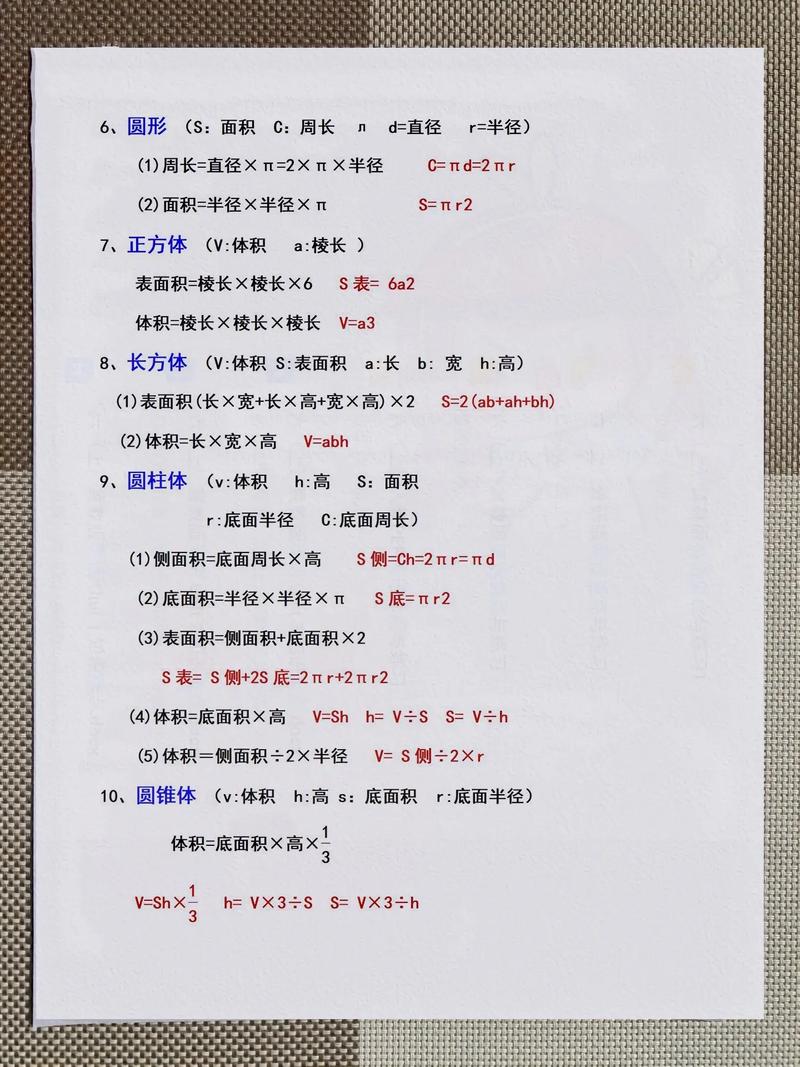 6、圆形 （S：面积 C：周长 л d=直径 r=半径）
(1)周长=直径×π=2×π×半径 C=πd=2πr
(2)面积=半径×半径×π S=πr2
7、正方体 （V:体积 a:棱长 ）
表面积=棱长×棱长×6 S表= 6a2
体积=棱长×棱长×棱长 V=a3
8、长方体 （V:体积 S:表面积 a:长 b: 宽 h:高）
(1)表面积(长×宽+长×高+宽×高)×2 S=2(ab+ah+bh)
(2)体积=长×宽×高 V=abh
9、圆柱体 （v:体积 h:高 S：面积
r:底面半径 C:底面周长）
(1)侧面积=底面周长×高 S侧=Ch=2πr=πd
(2)底面积=半径×半径×π S底=πr2
(3)表面积=侧面积+底面积×2
S表= S侧+2S底=2πr+2πr2
(4)体积=底面积×高 V=Sh h= V÷S S= V÷h
(5)体积＝侧面积÷2×半径 V= S侧÷2×r
10、圆锥体 （v:体积 h:高 s：底面积 r:底面半径）
体积=底面积×高×1/3
V=Sh×1/3 h= V×3÷S S= V×3÷h